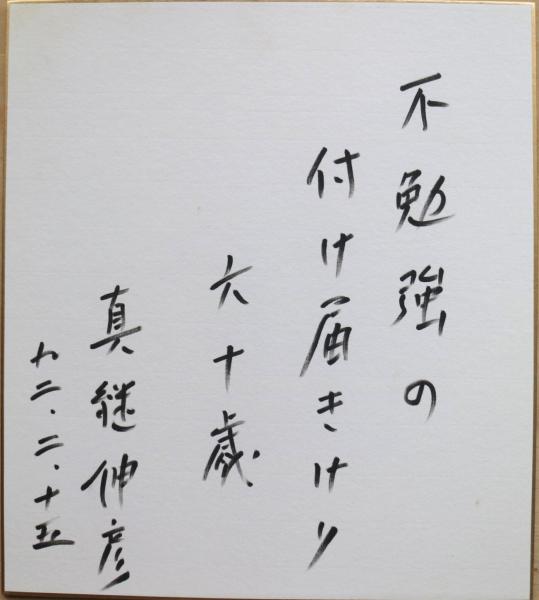 不勉強の
付け届きけり
六十歳
真継伸彦
九二.二.十五